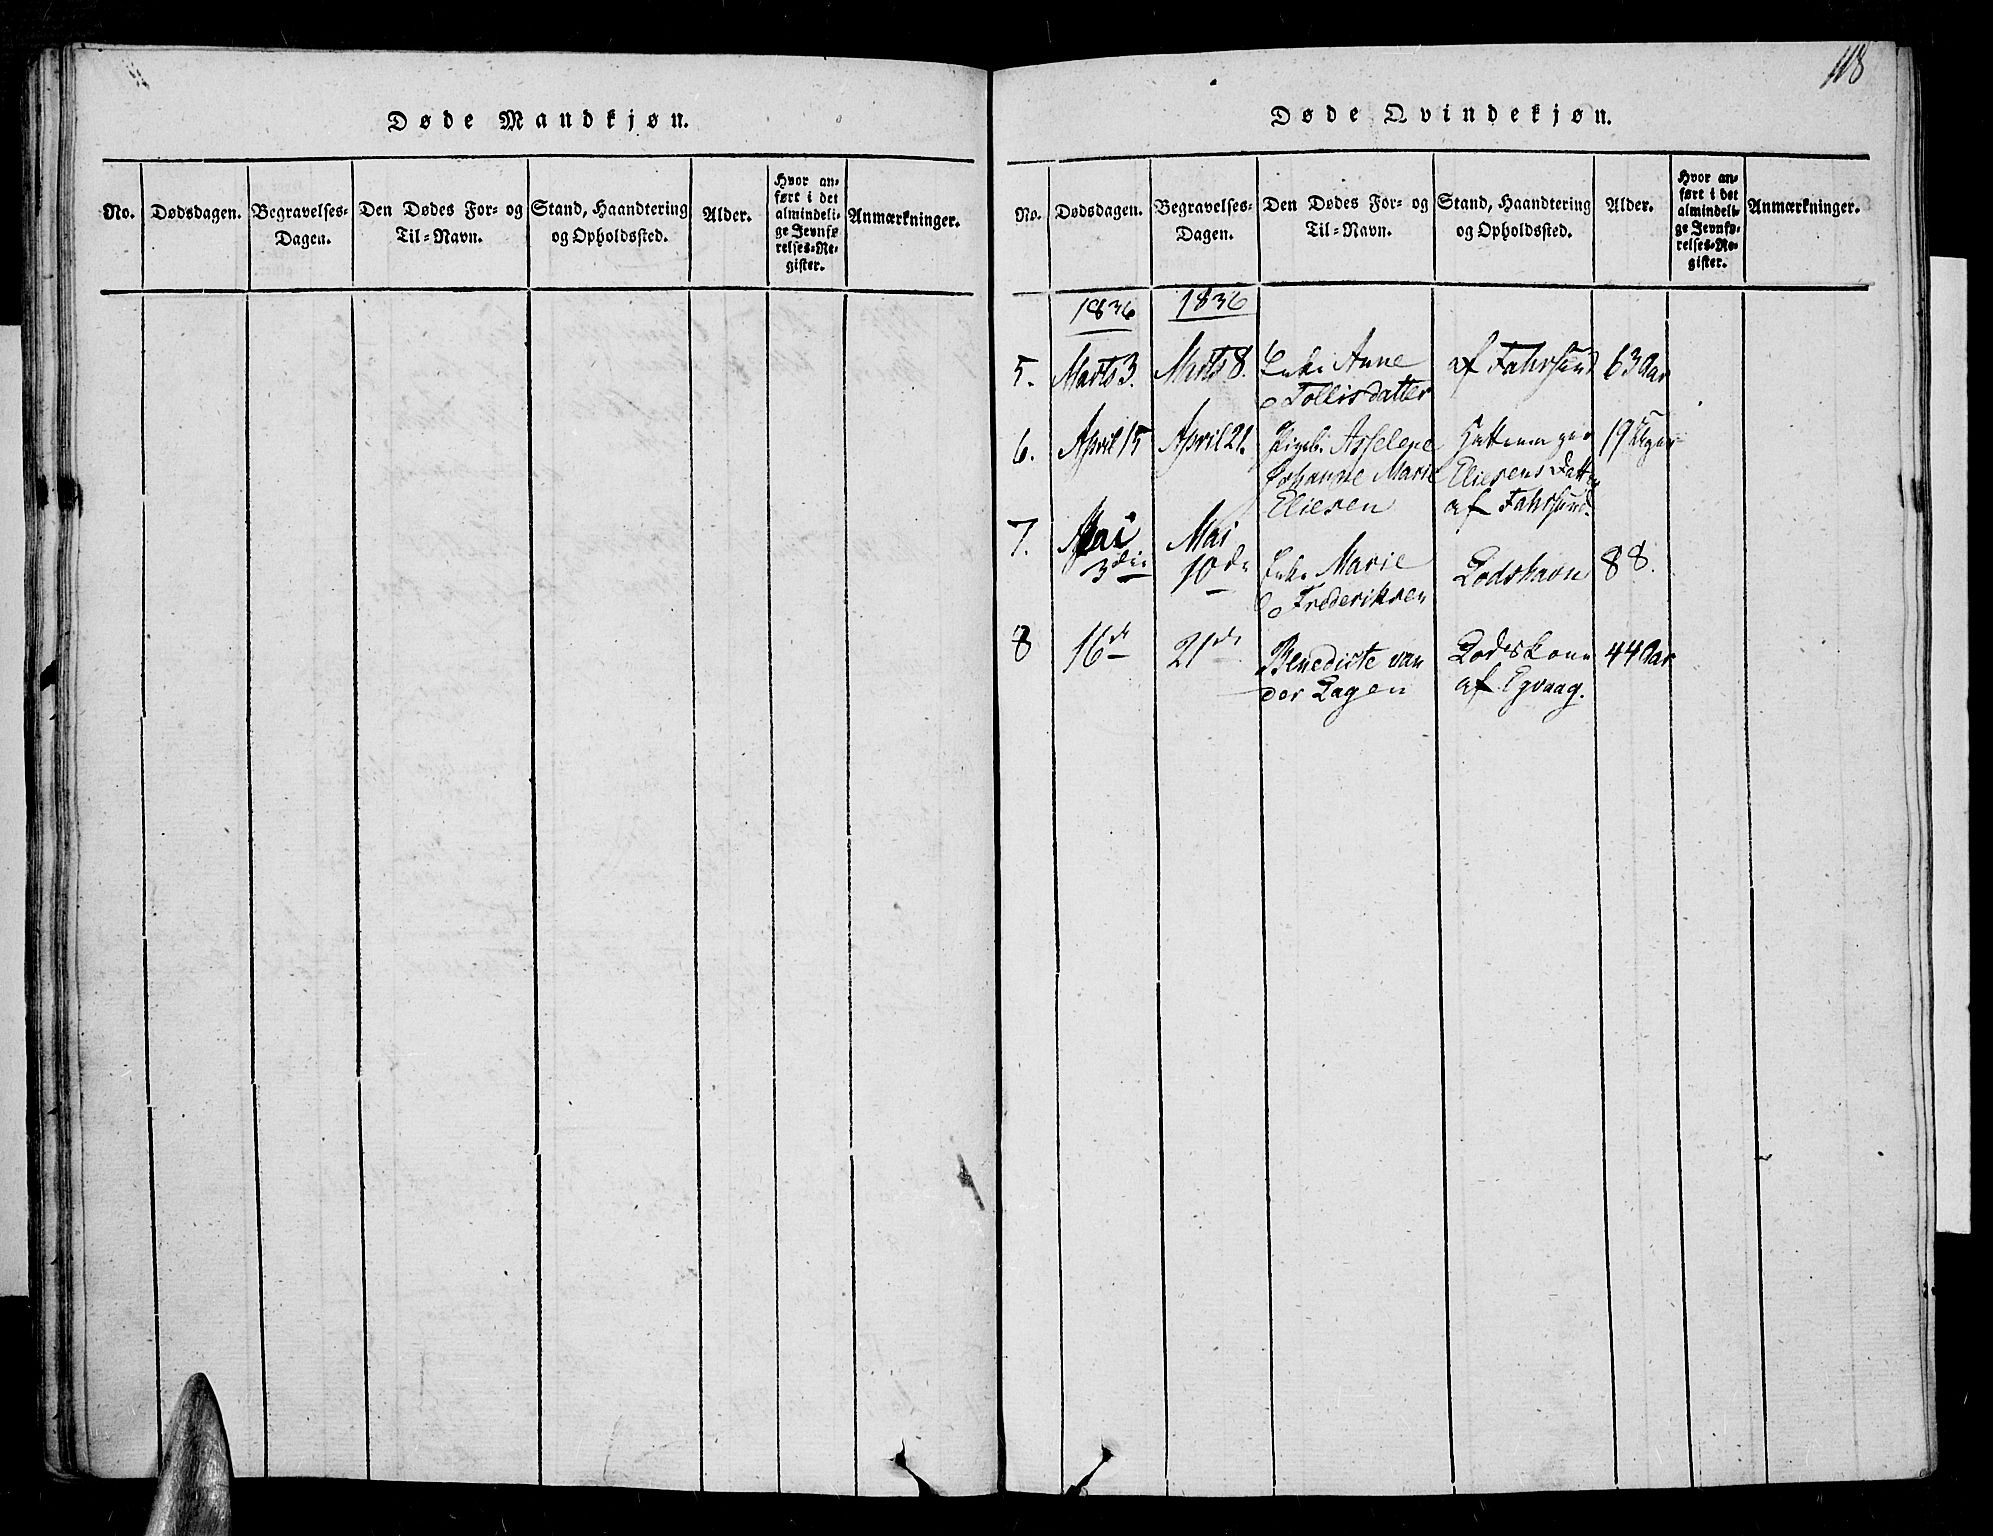 Døde Mandkjøn.
No.
Dødsdagen.
Begravelses-
Dagen.
Den Dødes For- og
Til-Navn.
Stand, Haandtering
og Opholdssted.
Alder.
Hvor an-
ført i det
almindeli-
ge Jevnfø-
relses-Re-
gister.
Anmærkninger.
118
Døde Qvindekjøn.
No.
Dødsdagen.
Begravelses-
Dagen.
Den Dødes For- og
Til-Navn.
Stand, Haandtering
og Opholdssted.
Alder.
Hvor an-
ført i det
almindeli-
ge Jevnfø-
relses-Re-
gister.
Anmærkninger.
1836 1836
5. Marts 3. Marts 8. Enke Anne af Fahrsund 63 Aar
Tollisdatter
6. April 15 April 21. Asselene 19 Uger
Johanne Marie Eliesens Datter
Eliesen af Fahrsund.
7. Mai Mai
3die 10de Enke Marie Lodshavn 88.
Frederiksen
8 16de 21de Benedicte van Lodskone 44 Aar
der Lagen af Egvaag.